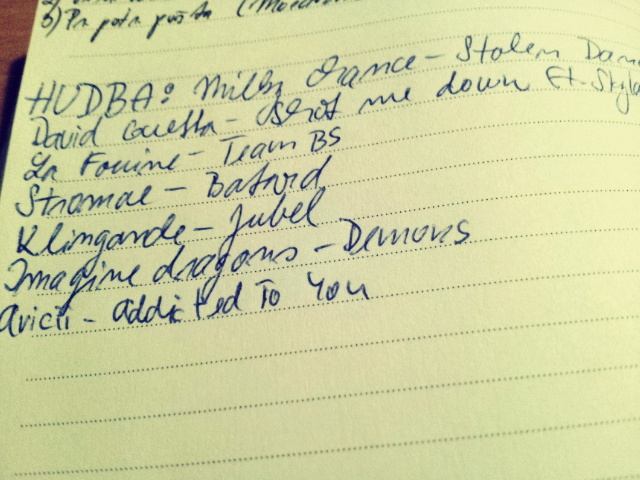 HUDBA: Milky Chance - Stolen Danc
David Guetta - Shot me down ft. Skyla
La Fouine - Team BS
Stromae - Batard
Klingande - Jubel
Imagine dragons - Demons
Avicii - addicted To You